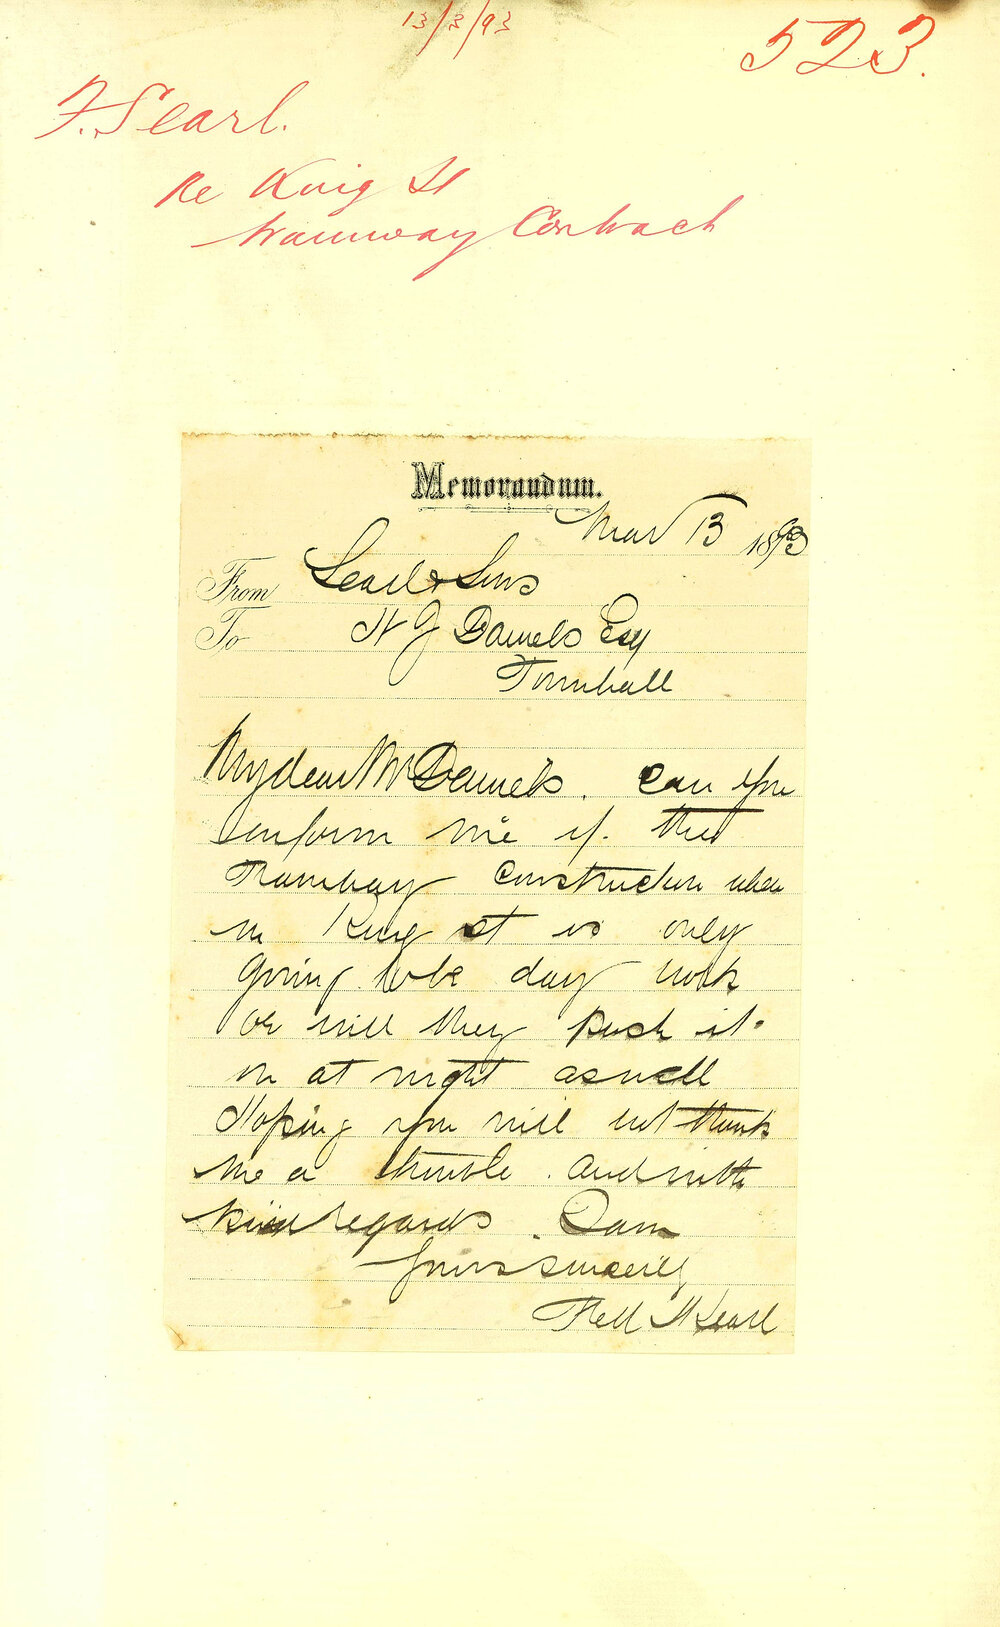 13/3/93
523.
F. Searl.
Re King St
Tramway Contract
Memorandum.
Mar 13 1893
From Searl & Sons
To H J Daniels Esq
Townhall
My dear Mr Daniels. Can you
inform me if the
Tramway Construction when
in King St is only
going to be day work
or will they push it
on at night as well
Hoping you will not think
me a trouble. and with
kind regards. I am
Yours sincerely
Fred H Searl